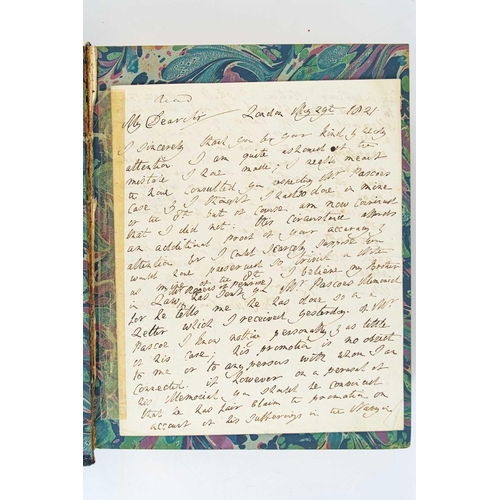 Read
My Dear Sir London May 29th 1821
I sincerely thank you for your kind & ready
attention I am quite ashamed of the
mistake I have made; I really meant
to have consulted you respecting Mr Pascoes
case & I thought I had so done in mine
of the 8t but of course am now convinced
that I did not: this circumstance affords
an additional proof of your accuracy &
attention for I could scarcely suppose you
would have preserved so trivial a Note
as mine of the 8t I believe my Brother
in Law has sent you Mr Pascoes Memorial
for he tells me he has done so in a
Letter which I received yesterday. of Mr
Pascoe I know nothing personally & as little
of his case; his promotion is no object
to me or to any persons with whom I am
connected if however on a perusal of
his Memorial you should be convinced
that he has fair Claim to promotion on
account of his sufferings in the